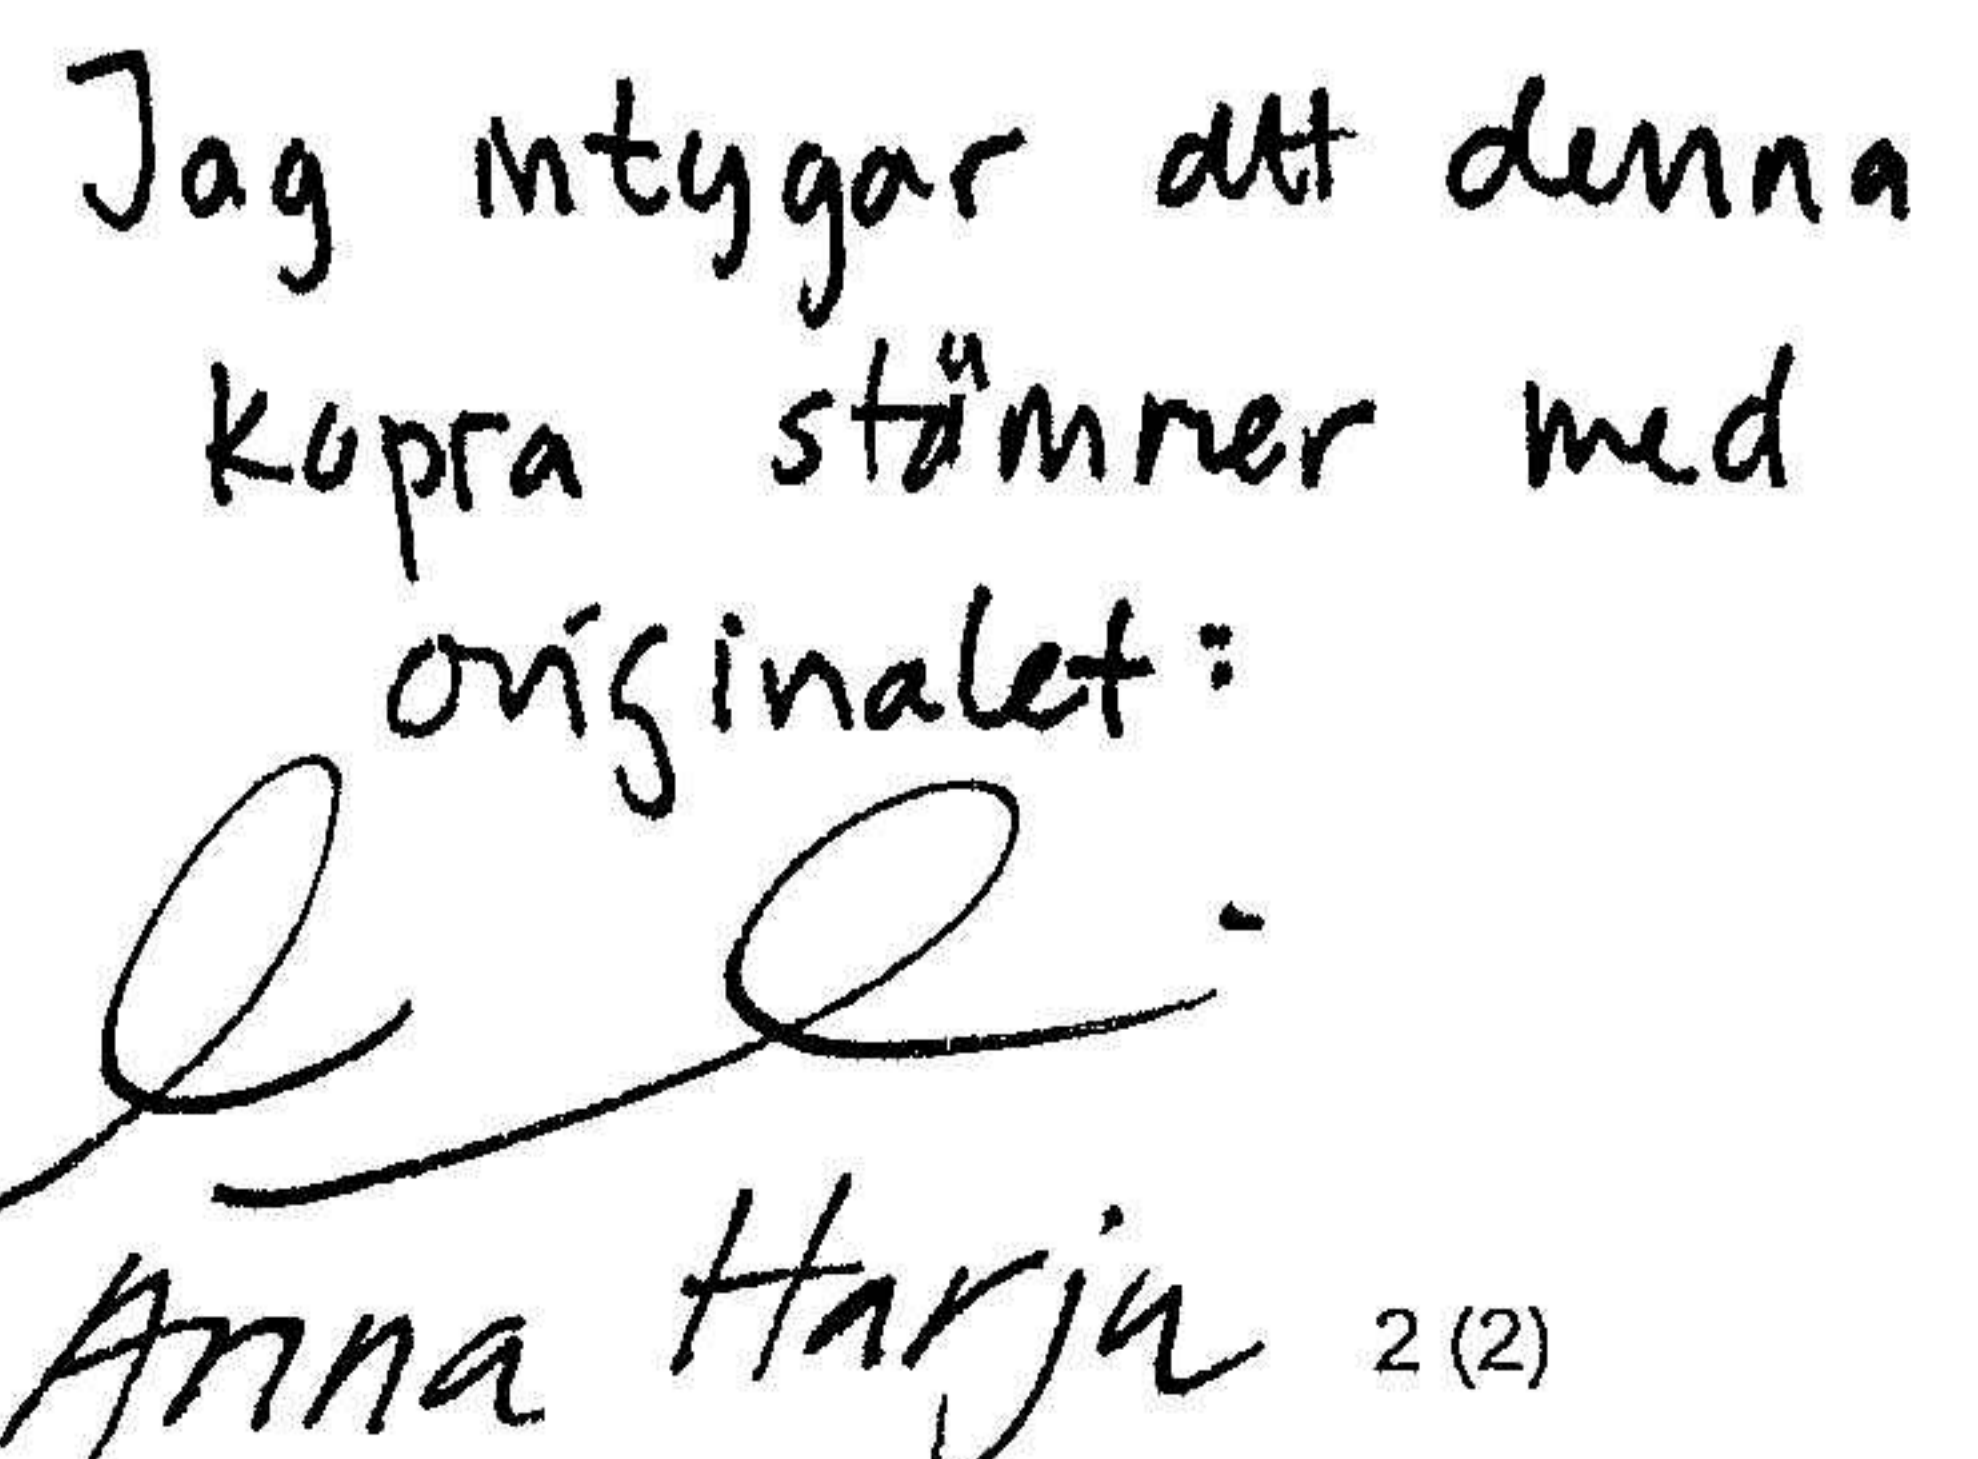 Jag intygar att denna
kopia stämmer med
originalet:
Anna Harju 2 (2)